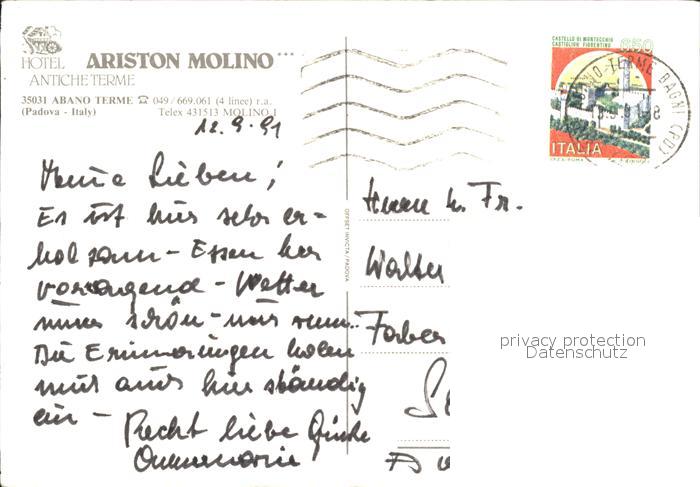 HOTEL ARISTON MOLINO ***
ANTICHE TERME
35031 ABANO TERME ☎ 049/669.061 (4 linee) r.a.
(Padova - Italy) Telex 431513 MOLINO I
12.9.91
Meine Lieben!
Es ist hier sehr er=
holsam - Essen her
vorragend - Wetter
immer schön - nur
Die Erinnerungen holen
mich auch hier ständig
ein -
Recht liebe Grüße
Annemarie
OFFSET INVICTA / PADOVA
CASTELLO DI MONTECCHIO
CASTIGLION FIORENTINO
650
ITALIA
TERME BAGNI (PD)
Herrn u. Fr.
Walter
Faber
privacy protection
Datenschutz